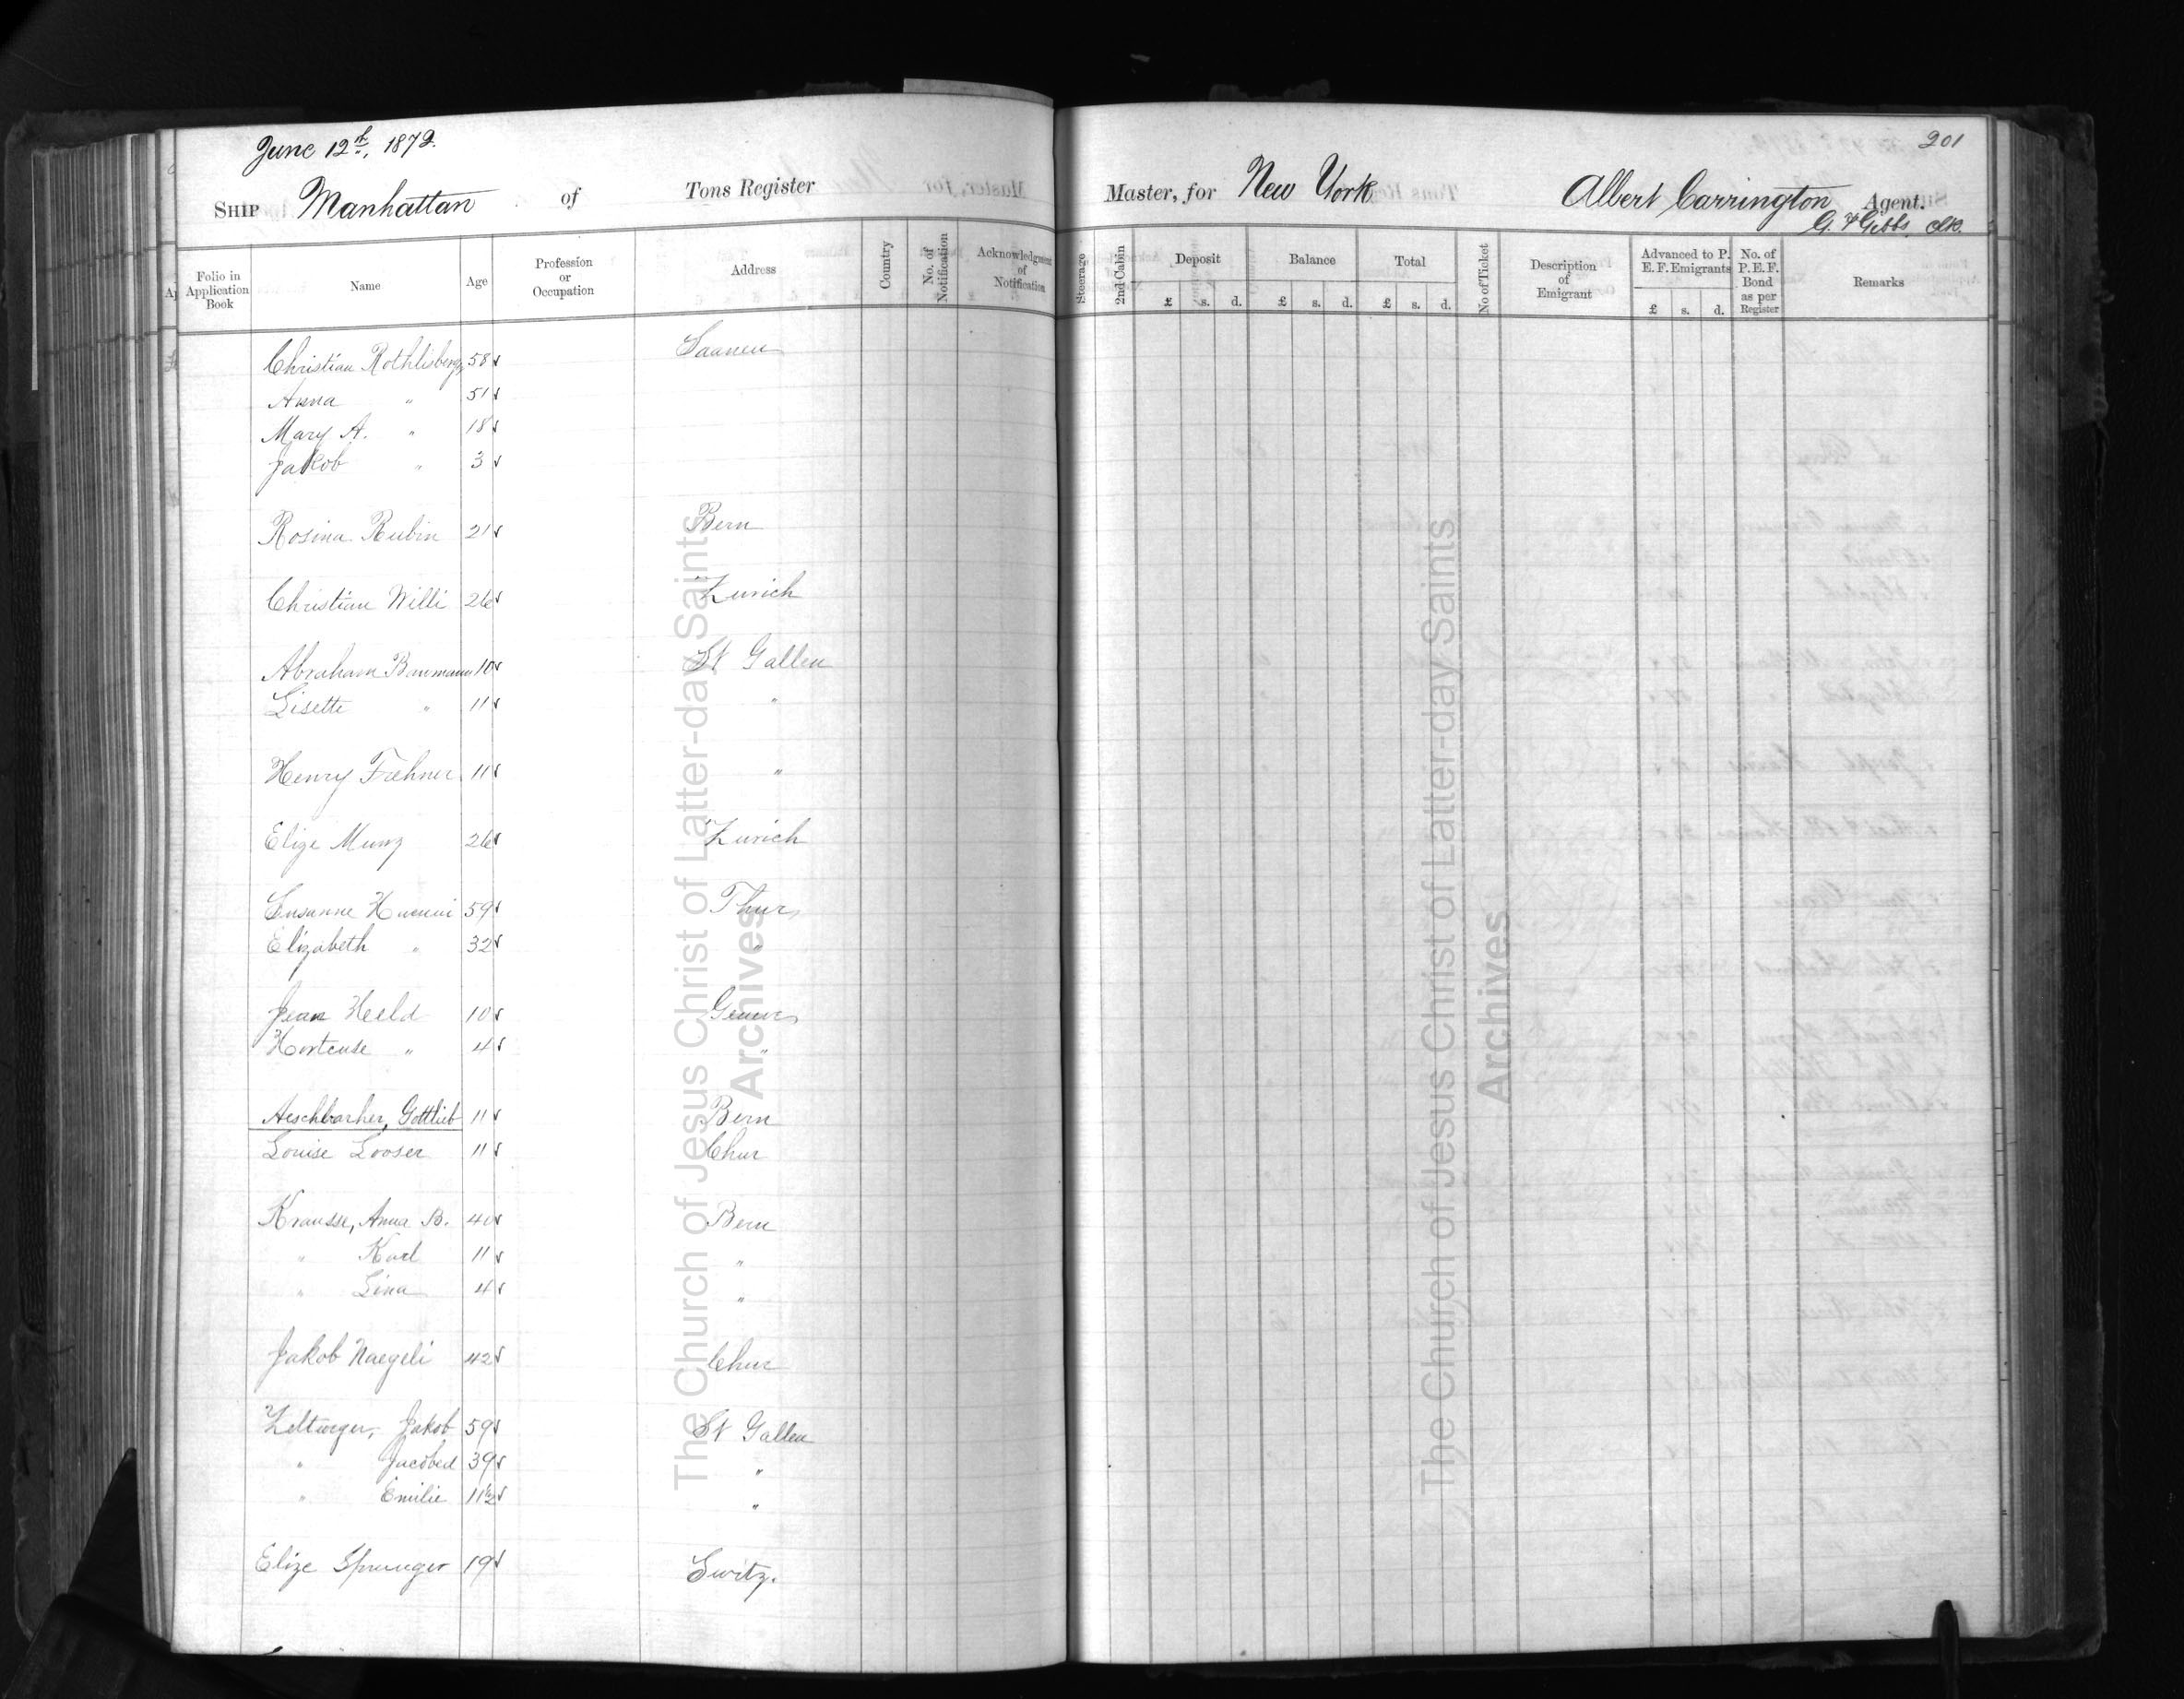 June 12th, 1872.
201
SHIP Manhattan of Tons Register Master, for New York Albert Carrington Agent.
G. F. Gibbs, Clk.
Folio in Application Book Name Age Profession or Occupation Address Country No. of Notification Acknowledgment of Notification Steerage 2nd Cabin Deposit Balance Total No of Ticket Description of Emigrant Advanced to P. E. F. Emigrants No. of P. E. F. Bond as per Register Remarks
£ s. d. £ s. d. £ s. d. £ s. d.
Christian Rothlisberg 58 Saanen
Anna " 51
Mary A. " 18
Jakob " 3
Rosina Rubin 21 Bern
Christian Willi 26 Zurich
Abraham Baumann 10 St Gallen
Lisette " 11 "
Henry Frehner 11 "
Elize Munz 26 Zurich
Susanne 59 Thur
Elizabeth " 32 "
Jean Heeld 10 Geneve
Hortense " 4 "
Aeschbacher, Gottlieb 11 Bern
Louise Looser 11 Chur
Krausse, Anna B. 40 Bern
" Karl 11 "
" Lina 4 "
Jakob Naegeli 42 Chur
Zeltweger, Jakob 59 St Gallen
" Jacobed 39 "
" Emilie 11½ "
Elize Sprunger 19 Switz.
The Church of Jesus Christ of Latter-day Saints
Archives
The Church of Jesus Christ of Latter-day Saints
Archives